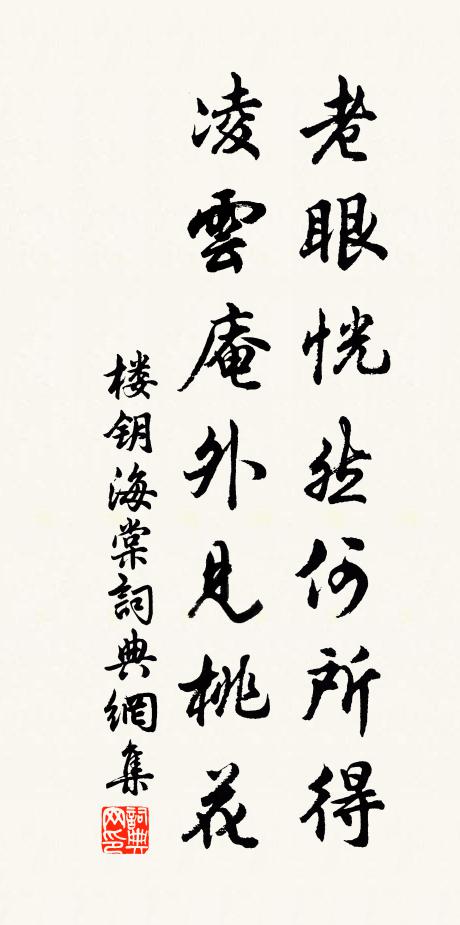 老眼恍然何所得
凌雲庵外見桃花
楼钥海棠詞典網集
詞典网印